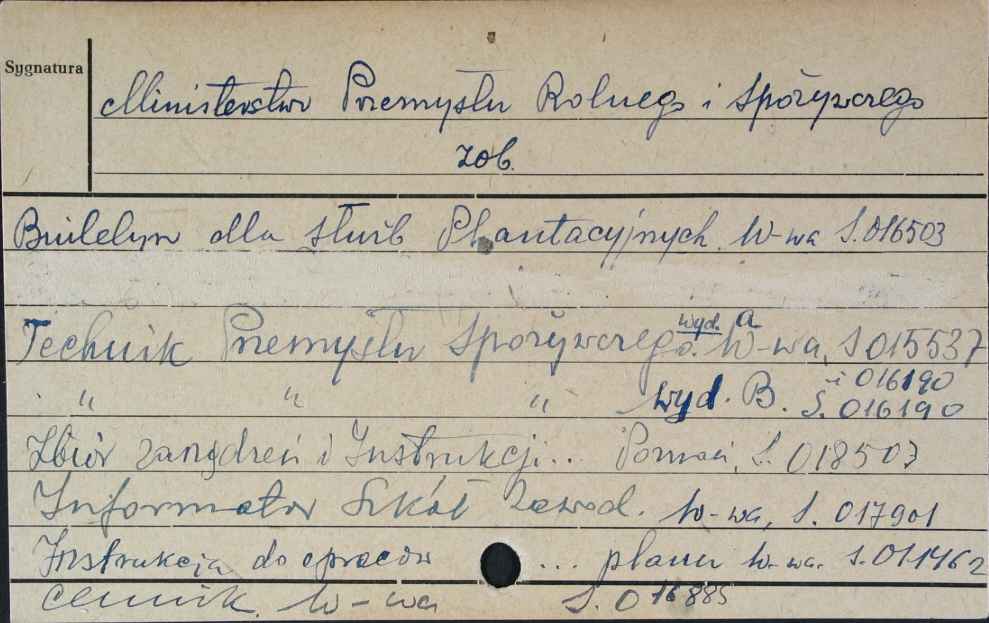 Sygnatura
Ministerstwo Przemysłu Rolnego i Spożywczego
zob.
Biuletyn dla służb Plantacyjnych. W-wa S.016503
Technik Przemysłu Spożywczego. wyd. A W-wa, S 015537
i 016190
" " " wyd. B. S. 016190
Zbiór zarządzeń i Instrukcji... Poznań, S. 018507
Informator Szkół Zawod. W-wa, S. 017901
Instrukcja do opracow ... planu W-wa. S.011462
Cennik. W-wa S.016885